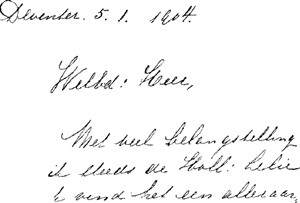 Deventer. 5. 1. 1904.
Welbd: Heer,
Met veel belangstelling
ik steeds de Holl: Lelie
k vind het een alleraar